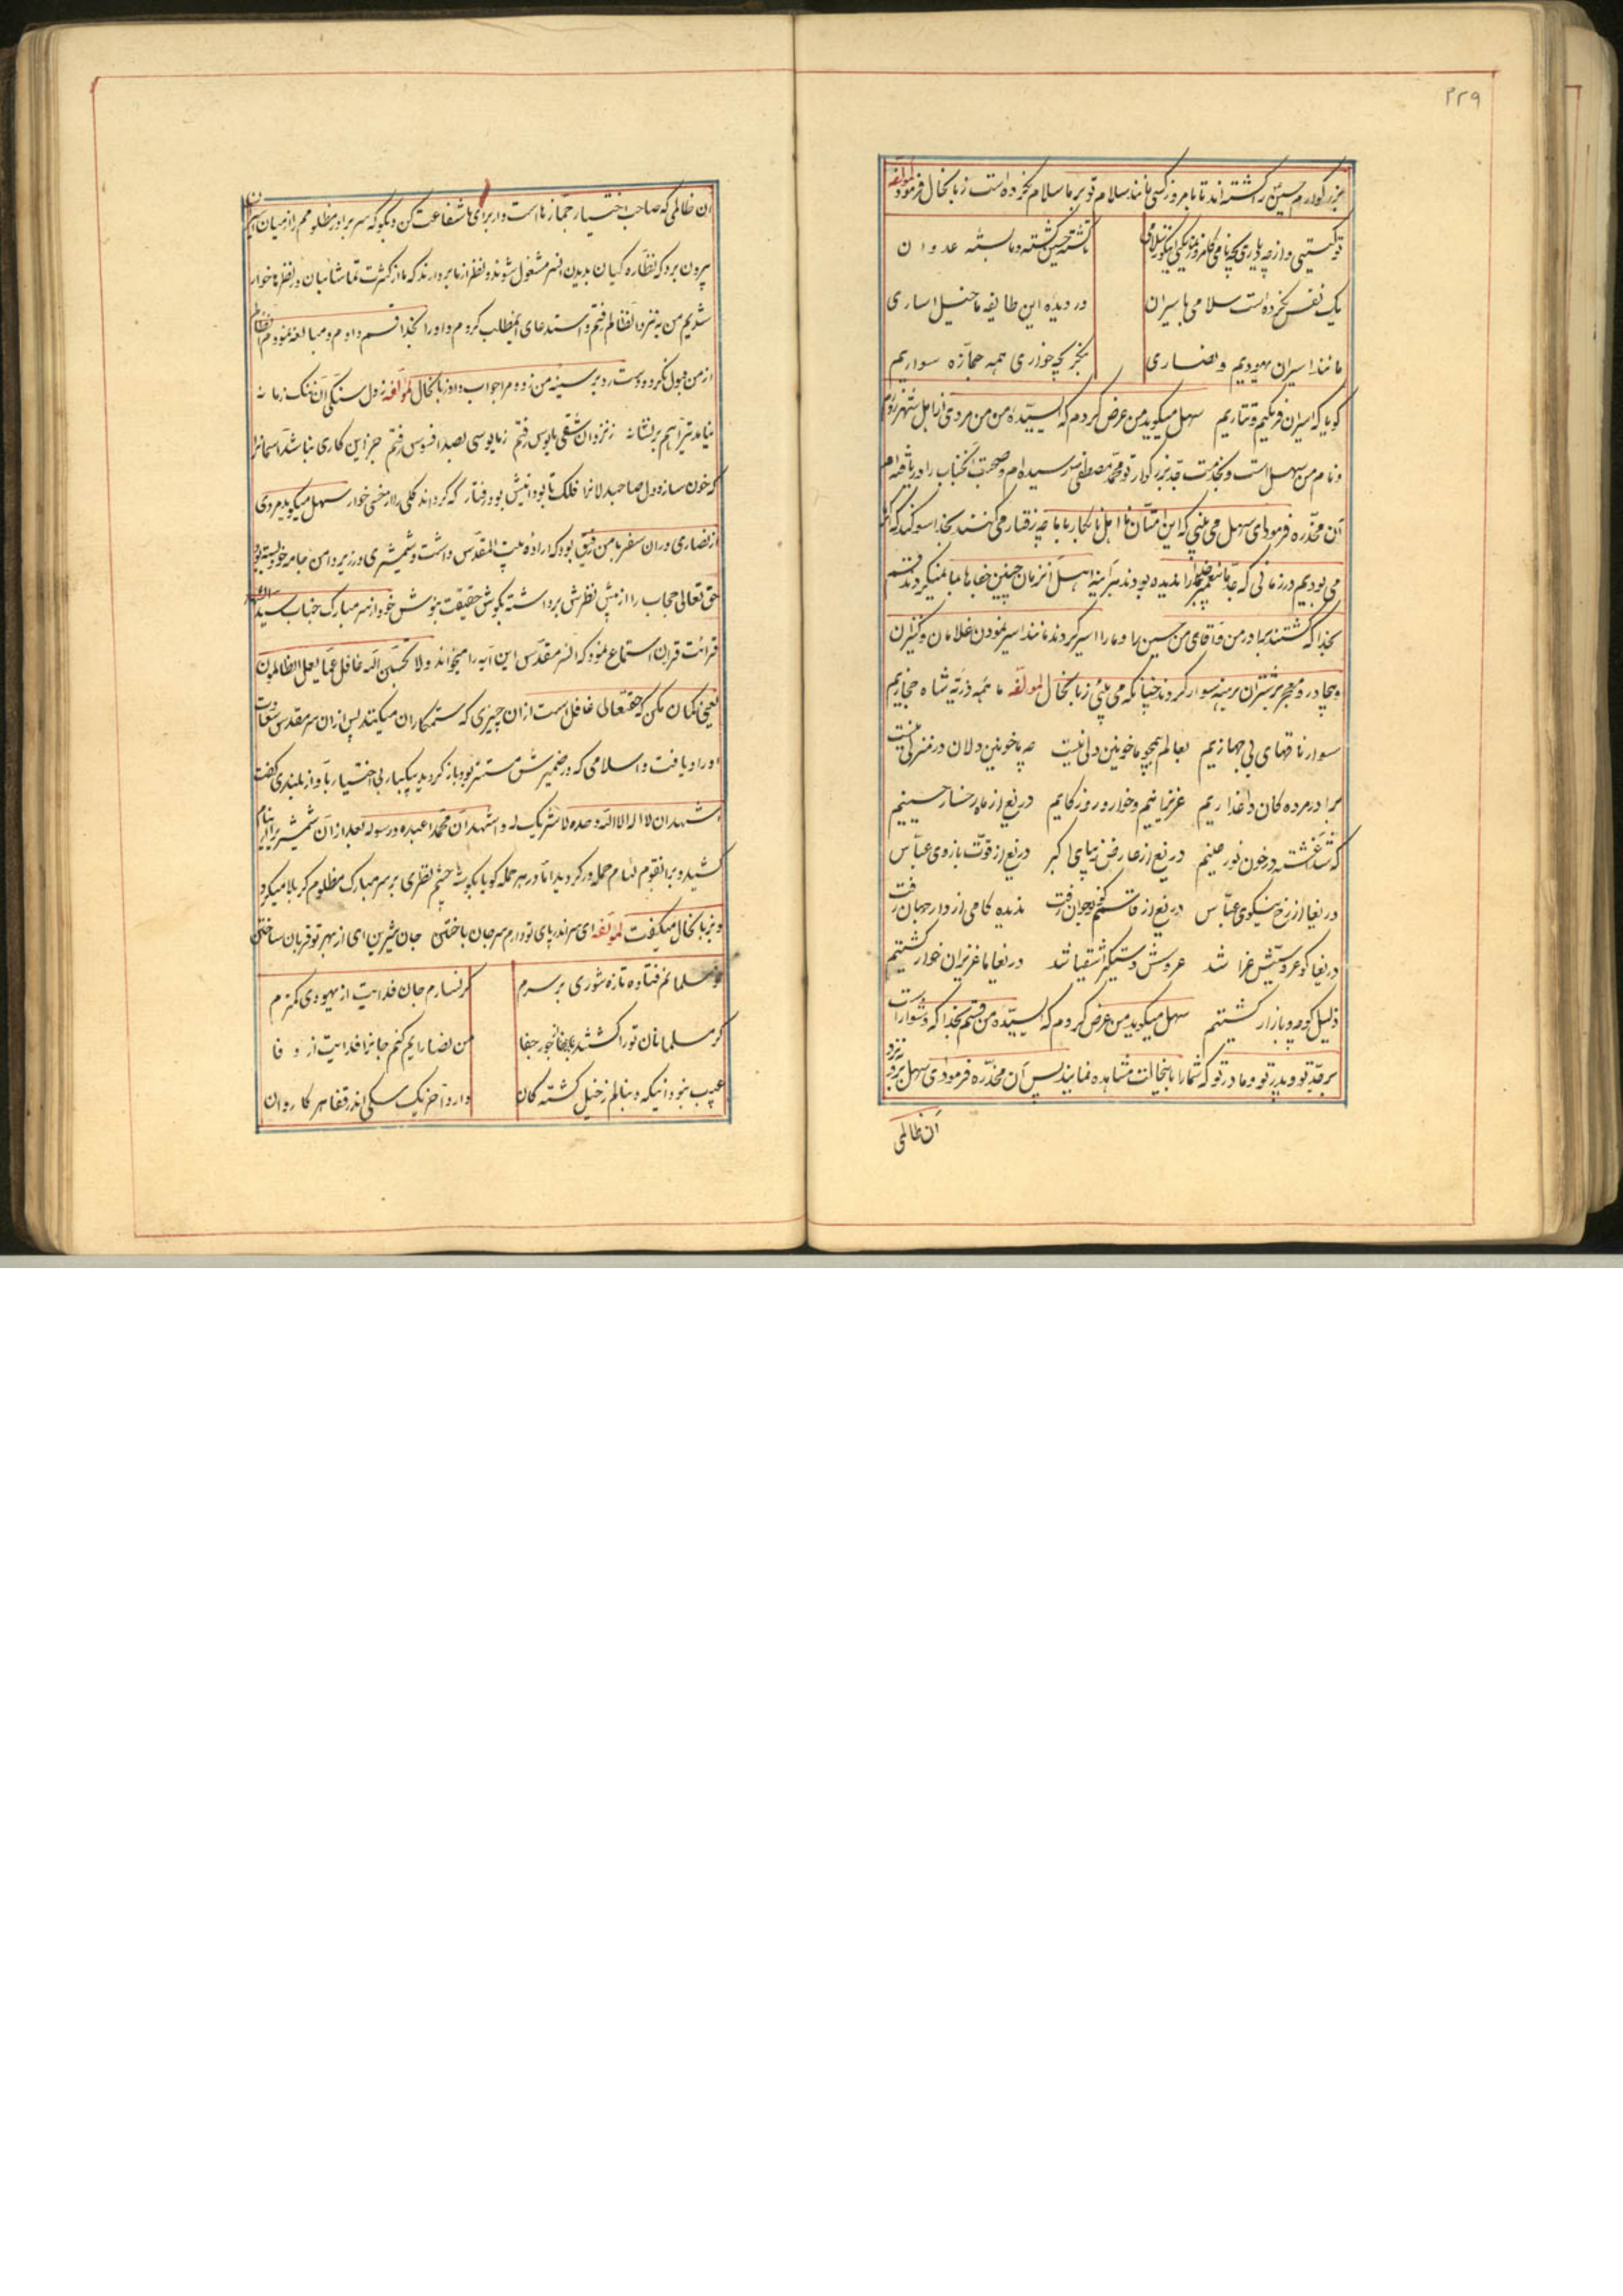 ۲۲۹
بزرگوارم حسین را کشته‌اند تا بامروز کسی مانند سلام تو بر ما سلام نکرده است زبانحال فرمود لمؤلفه
تو کیستی و از چه دیاری و چه نامی
تا کشته حسین گشته و ما بسته عدوان
یک نفس نکرده است سلامی باسیران
در دیده این طایفه ما خیل اساری
مانند اسیران یهودیم و نصاری
بنگر بچه خواری همه جمازه سواریم
گویا که اسیران فرنگیم و تتاریم سهل میگوید من عرض کردم که ای سیده من من مردی از اهل شهرزورم
و نام من سهل است و بخدمت جد بزرگوار تو محمد مصطفی رسیده‌ام و صحبت آنجناب را دریافته‌ام
آن مخدره فرمود ای سهل می بینی که این امتان نا اهل نابکار با ما چه رفتار می کنند بخدا سوگند که اگر
می بودیم در زمانی که جد ما پیغمبر مختار را ندیده بودند هرآینه اهل آنزمان چنین جفاها با ما نمیکردند قسم
بخدا که کشتند برادر من و آقای من حسین را و ما را اسیر کردند مانند اسیر نمودن غلامان و کنیزان
و بیچادر و معجر بر شتران برهنه سوار کردند چنانکه می بینی زبانحال لمؤلفه ما همه ذریه شاه حجازیم
سوار ناقهای بی جهازیم بعالم همچو ما خونین دلی نیست چه ما خونین دلان در منزلی نیست
برادر مرده کان داغداریم عزیزانیم و خوار روزگاریم دریغ از ماه رخسار حسینیم
که شد آغشته در خون نور عینیم دریغ از عارض زیبای اکبر دریغ از قوت بازوی عباس
دریغا از رخ نیکوی عباس دریغ از قاسم کز نوجوان رفت ندیده کامی از دار جهان رفت
دریغا کو عروسیش عزا شد عروسش دستگیر اشقیا شد دریغا ما عزیزان خوار گشتیم
ذلیل کوچه و بازار گشتیم سهل میگوید من عرض کردم که ای سیده من قسم بخدا که دشوار است
بر جد تو و پدر تو و مادر تو که شما را باینحالت مشاهده نمایند پس آن مخدره فرمود ای سهل برو نزد
آن ظالمی
آن ظالمی که صاحب اختیار جمازها است و از برای ما شفاعت کن و بگو که سر برادر مظلومم را از میان اسیران
بیرون برد که نظاره کیان بدیدن آنسر مشغول شوند و نظر از ما بردارند که ما از کثرت تماشائیان در نظرها خوار
شدیم من به نزد آنظالم رفتم و استدعای اینمطلب کردم و او را بخدا قسم دادم و مبالغه نمودم آن ظالم
از من قبول نکرد و دست رد بر سینه من زد و مرا جواب داد زبانحال لمؤلفه ز دل سنگی آن ننک زمانه
نیامد تیر آهم بر نشانه ز نزد آن شقی مایوس رفتم ز مایوسی بصد افسوس رفتم جز این کاری نباشد آسمانرا
که خون سازد دل صاحبدلانرا فلک تا بود اینش بود رفتار که گرداند گلی را از خسی خوار سهل میگوید مردی
از نصاری در آن سفر با من رفیق بود که اراده بیت المقدس داشت و شمشیری در زیر دامن جامه خود بسته بود
حق تعالی حجاب را از پیش نظرش برداشته بگوش حقیقت نیوش خود از سر مبارک جناب سید الشهدا
قرائت قران استماع نمود که آنسر مقدس این آیه را میخواند ولا تحسبن الله غافلا عما یعمل الظالمون
یعنی گمان مکن که حقتعالی غافل است از آن چیزی که ستمکاران میکنند پس از آن سر مقدس سعادت
او را دریافت و اسلامی که در ضمیرش مستتر بود بارز گردید یکبار بی اختیار بآواز بلندی گفت
اشهد ان لا اله الا الله وحده لا شریک له و اشهد ان محمدا عبده و رسوله بعد از آن شمشیر را از نیام
کشید و بر آنقوم لئام حمله‌ور گردید اما در هر حمله گویا بگوشه چشم نظری بر سر مبارک مظلوم کربلا میکرد
و بزبانحال میگفت لمؤلفه ای سر اندر پای تو دارم سر جان باختن جان شیرین ای از بهر تو قربان ساختن
نو مسلمانم فتاده تازه شوری بر سرم
گر نسازم جان فدایت از یهودی کمترم
گر مسلمانان تو را کشتند از جور جفا
من نصارایم کنم جانرا فدایت از وفا
عیب نبود آنیکه دنبالم ز خیل کشته کان
دارد آخر یک سگی اندر قفا هر کاروان